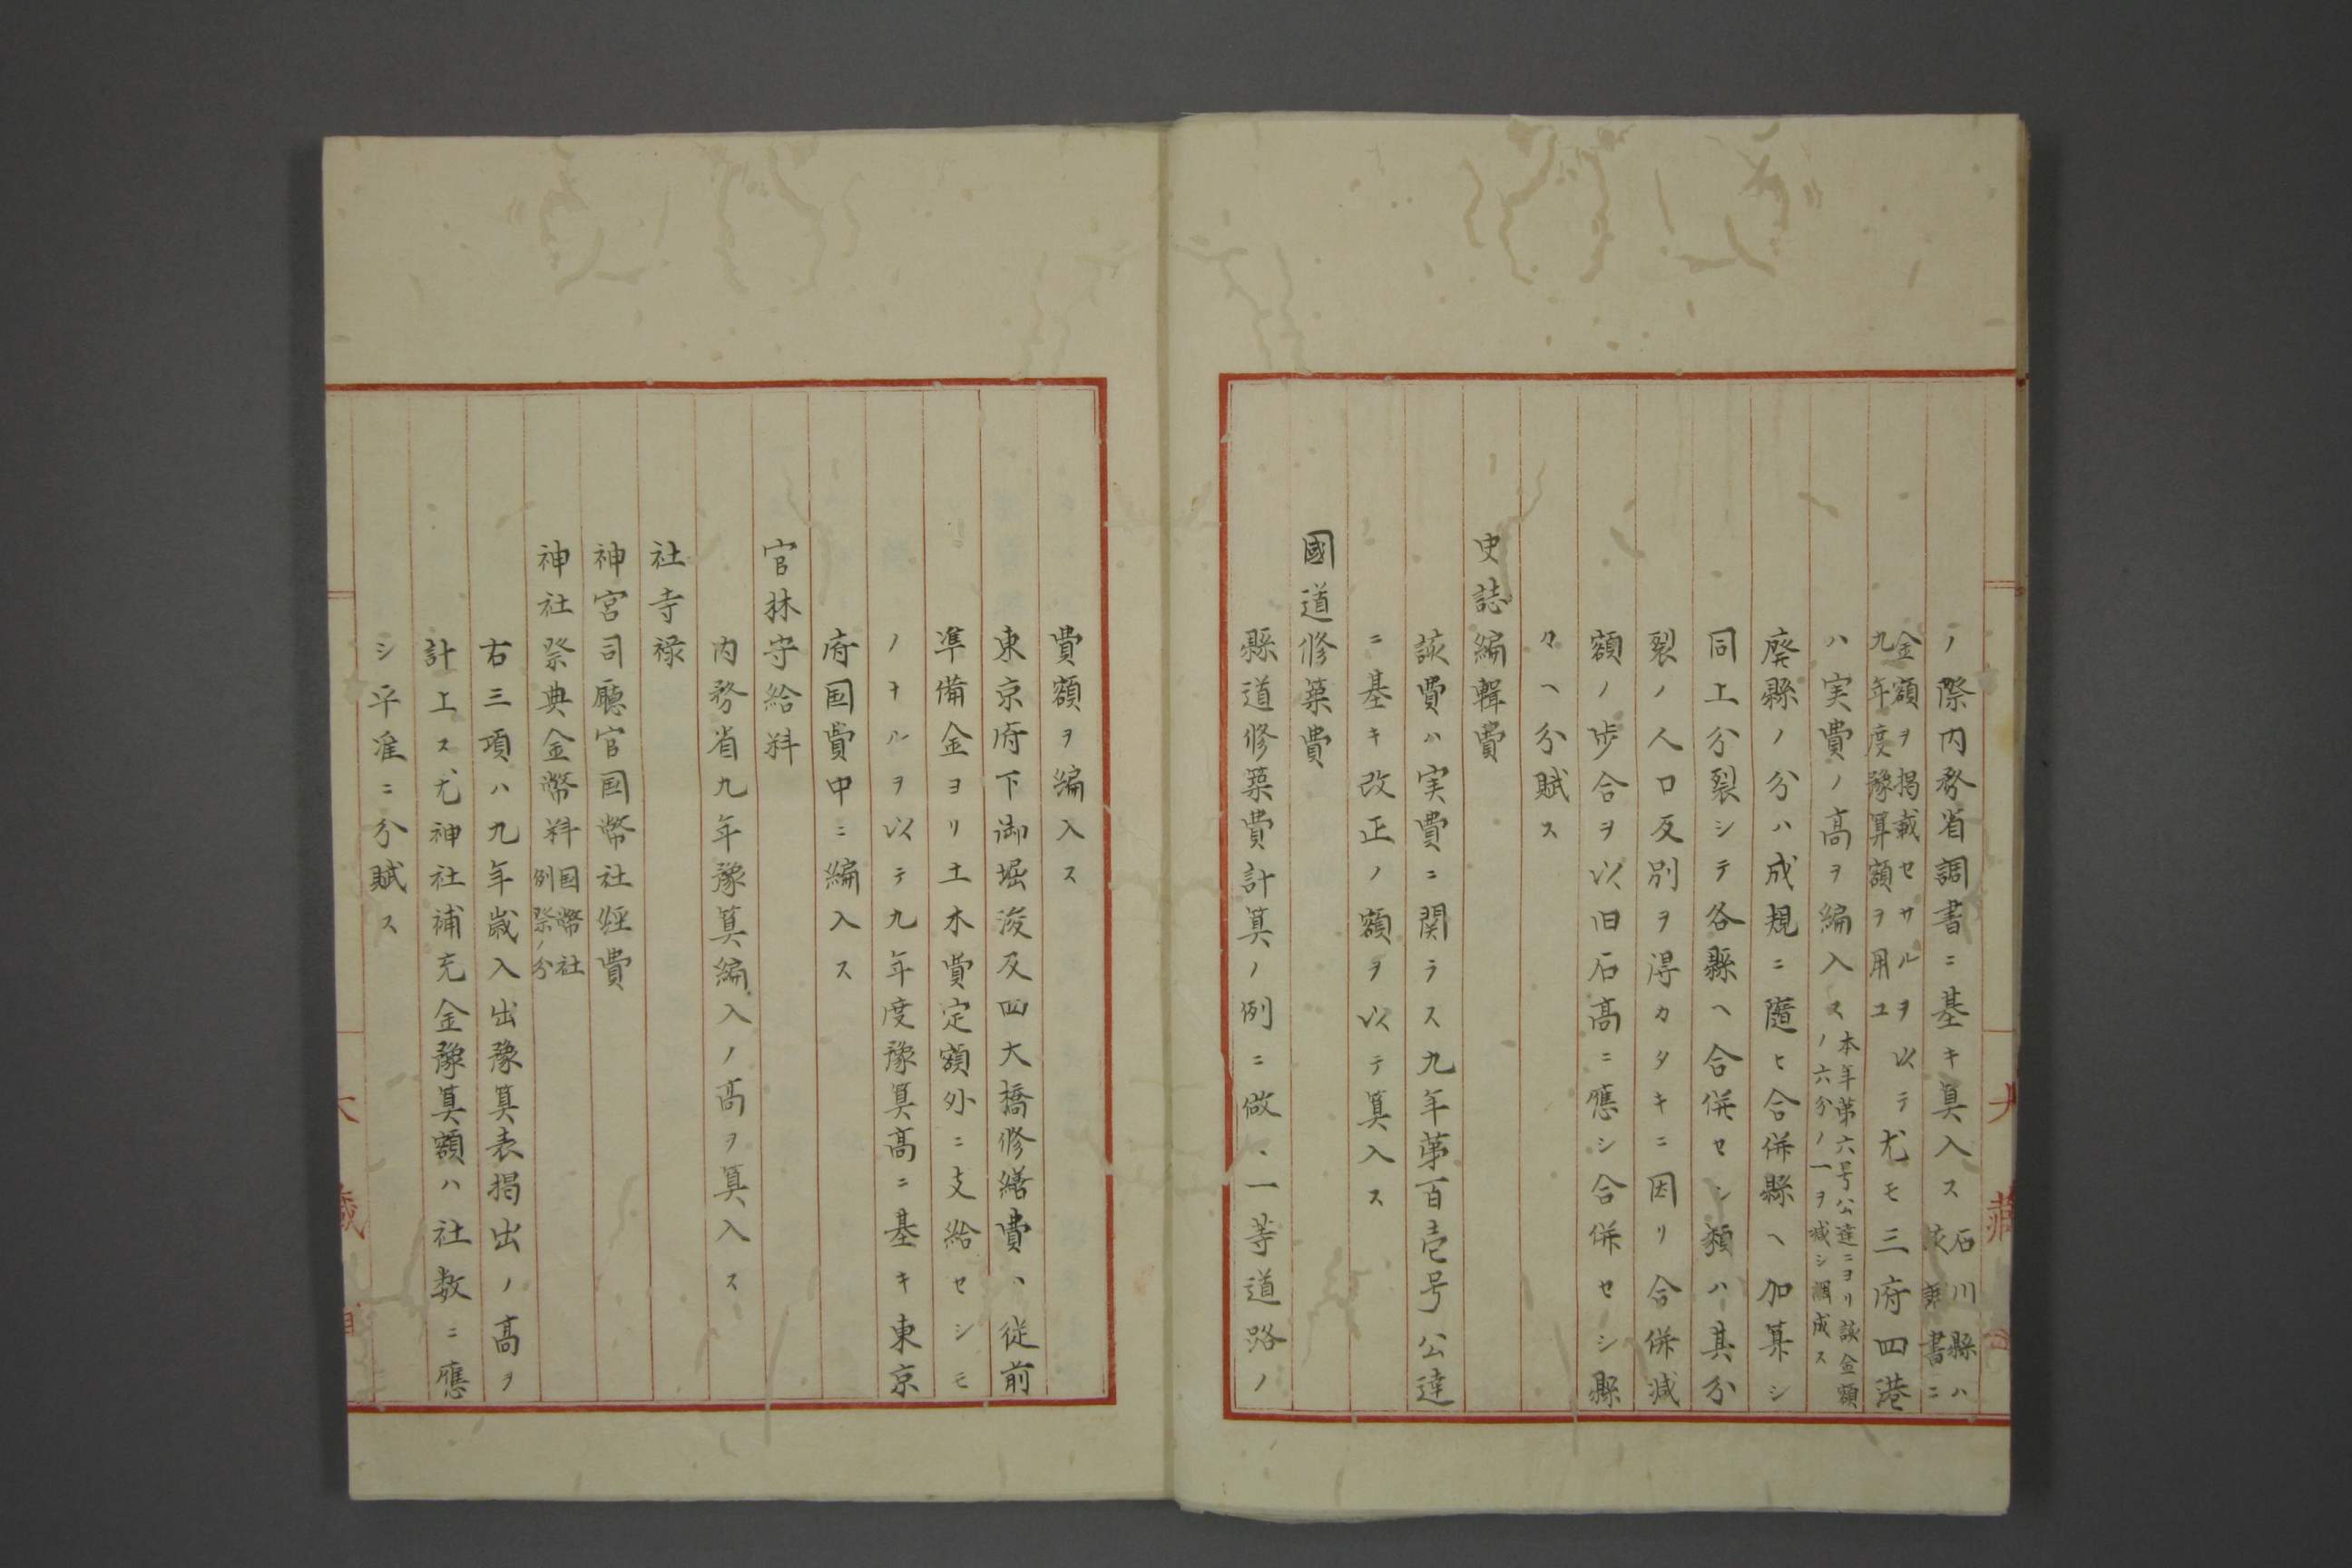 ノ際内務省調書ニ基キ算入ス石川縣ハ該費書ニ
金額ヲ掲載セサルヲ以テ九年度豫算額ヲ用ユ尤モ三府四港
ハ実費ノ高ヲ編入ス本年第六号公達ニヨリ該金額ノ六分ノ一ヲ減シ調成ス
廃縣ノ分ハ成規ニ随ヒ合併縣ヘ加算シ
同上分裂シテ各縣ヘ合併セシ類ハ其分
裂ノ人口反別ヲ得カタキニ因リ合併減
額ノ歩合ヲ以旧石高ニ應シ合併セシ縣
々ヘ分賦ス
史誌編輯費
該費ハ実費ニ関ラス九年第百壱号公達
ニ基キ改正ノ額ヲ以テ算入ス
國道修築費
縣道修築費計算ノ例ニ倣ヽ一等道路ノ
費額ヲ編入ス
東京府下御堀浚及四大橋修繕費ハ従前
準備金ヨリ土木費定額外ニ支給セシモ
ノナルヲ以テ九年度豫算高ニ基キ東京
府国費中ニ編入ス
官林守給料
内務省九年豫算編入ノ高ヲ算入ス
社寺禄
神宮司廳官国幣社経費
神社祭典金幣料国幣社例祭ノ分
右三項ハ九年歳入出豫算表掲出ノ高ヲ
計上ス尤神社補充金豫算額ハ社数ニ應
シ平准ニ分賦ス